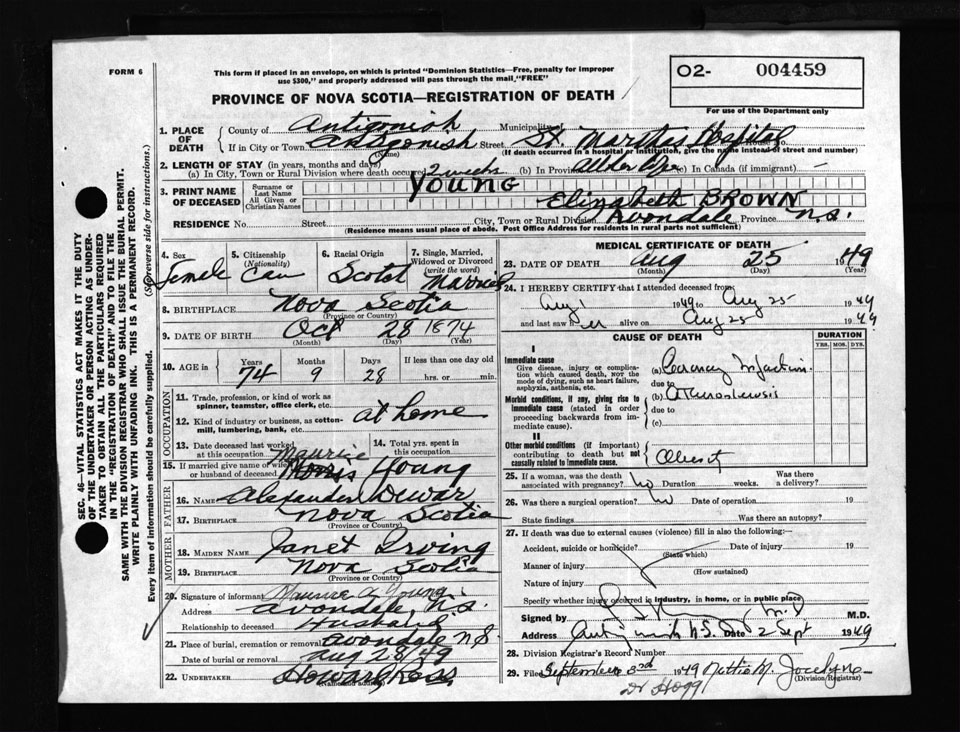 FORM 6
This form if placed in an envelope, on which is printed "Dominion Statistics—Free, penalty for improper
use $300," and properly addressed will pass through the mail "FREE"
O2- 004459
For use of the Department only
PROVINCE OF NOVA SCOTIA—REGISTRATION OF DEATH
1. PLACE OF DEATH
County of Antigonish Municipality of
If in City or Town Antigonish Street St. Marthas Hospital House No
(Name) (If death occurred in a hospital or institution, give the name instead of street and number)
2. LENGTH OF STAY (in years, months and days)
(a) In City, Town or Rural Division where death occurred 2 weeks (b) In Province All her life (c) In Canada (if immigrant) -
3. PRINT NAME OF DECEASED
Surname or Last Name YOUNG
All Given or Christian Names Elizabeth BROWN
RESIDENCE No. Street City, Town or Rural Division Avondale Province N.S.
(Residence means usual place of abode. Post Office Address for residents in rural parts not sufficient)
4. Sex Female
5. Citizenship (Nationality) Can
6. Racial Origin Scotch
7. Single, Married, Widowed or Divorced (write the word) Married
8. BIRTHPLACE Nova Scotia
(Province or Country)
9. DATE OF BIRTH Oct 28 1874
(Month) (Day) (Year)
10. AGE in Years Months Days If less than one day old
74 9 28 hrs. or min.
OCCUPATION
11. Trade, profession, or kind of work as
spinner, teamster, office clerk, etc.
12. Kind of industry or business, as cotton-
mill, lumbering, bank, etc. at home
13. Date deceased last worked
at this occupation
14. Total yrs. spent in
this occupation
15. If married give name of wife
or husband of deceased Maurice Morris Young
FATHER
16. NAME Alexander Dewar
17. BIRTHPLACE Nova Scotia
(Province or Country)
MOTHER
18. MAIDEN NAME Janet Irving
19. BIRTHPLACE Nova Scotia
(Province or Country)
20. Signature of informant Maurice A. Young
Address Avondale, N.S.
Relationship to deceased Husband
21. Place of burial, cremation or removal Avondale N.S.
Date of burial or removal Aug 28/49
22. UNDERTAKER Howard Ross
(Name and Address)
MEDICAL CERTIFICATE OF DEATH
23. DATE OF DEATH Aug 25 1949
(Month) (Day) (Year)
24. I HEREBY CERTIFY that I attended deceased from
Aug 1 1949 to Aug 25 1949
and last saw her alive on Aug 25 1949
CAUSE OF DEATH
DURATION
YRS. MOS. DYS.
I
Immediate cause
Give disease, injury or complica-
tion which caused death, NOT the
mode of dying, such as heart failure,
asphyxia, asthenia, etc.
(a) Coronary
due to
Morbid conditions, if any, giving rise to
immediate cause (stated in order
proceeding backwards from im-
mediate cause).
(b)
due to
(c)
II
Other morbid conditions (if important)
contributing to death but not
causally related to immediate cause. Obesity
25. If a woman, was the death
associated with pregnancy? No Duration weeks. Was there
a delivery?
26. Was there a surgical operation? No Date of operation 19
State findings Was there an autopsy?
27. If death was due to external causes (violence) fill in also the following:—
Accident, suicide or homicide? Date of injury 19
(State which)
Manner of injury
(How sustained)
Nature of injury
Specify whether injury occurred in industry, in home, or in public place
Signed by M.D. M.D.
Address Antigonish N.S. Date 2 Sept 1949
28. Division Registrar's Record Number
29. Filed September 3rd 1949 Nettie M. Jocelyne
(Division Registrar)
Dr Hogg
SEC. 46—VITAL STATISTICS ACT MAKES IT THE DUTY
OF THE UNDERTAKER OR PERSON ACTING AS UNDER-
TAKER TO OBTAIN ALL THE PARTICULARS REQUIRED
IN THE "REGISTRATION OF DEATH" AND TO FILE THE
SAME WITH THE DIVISION REGISTRAR WHO SHALL ISSUE THE BURIAL PERMIT.
WRITE PLAINLY WITH UNFADING INK. THIS IS A PERMANENT RECORD.
Every item of information should be carefully supplied. (See reverse side for instructions.)